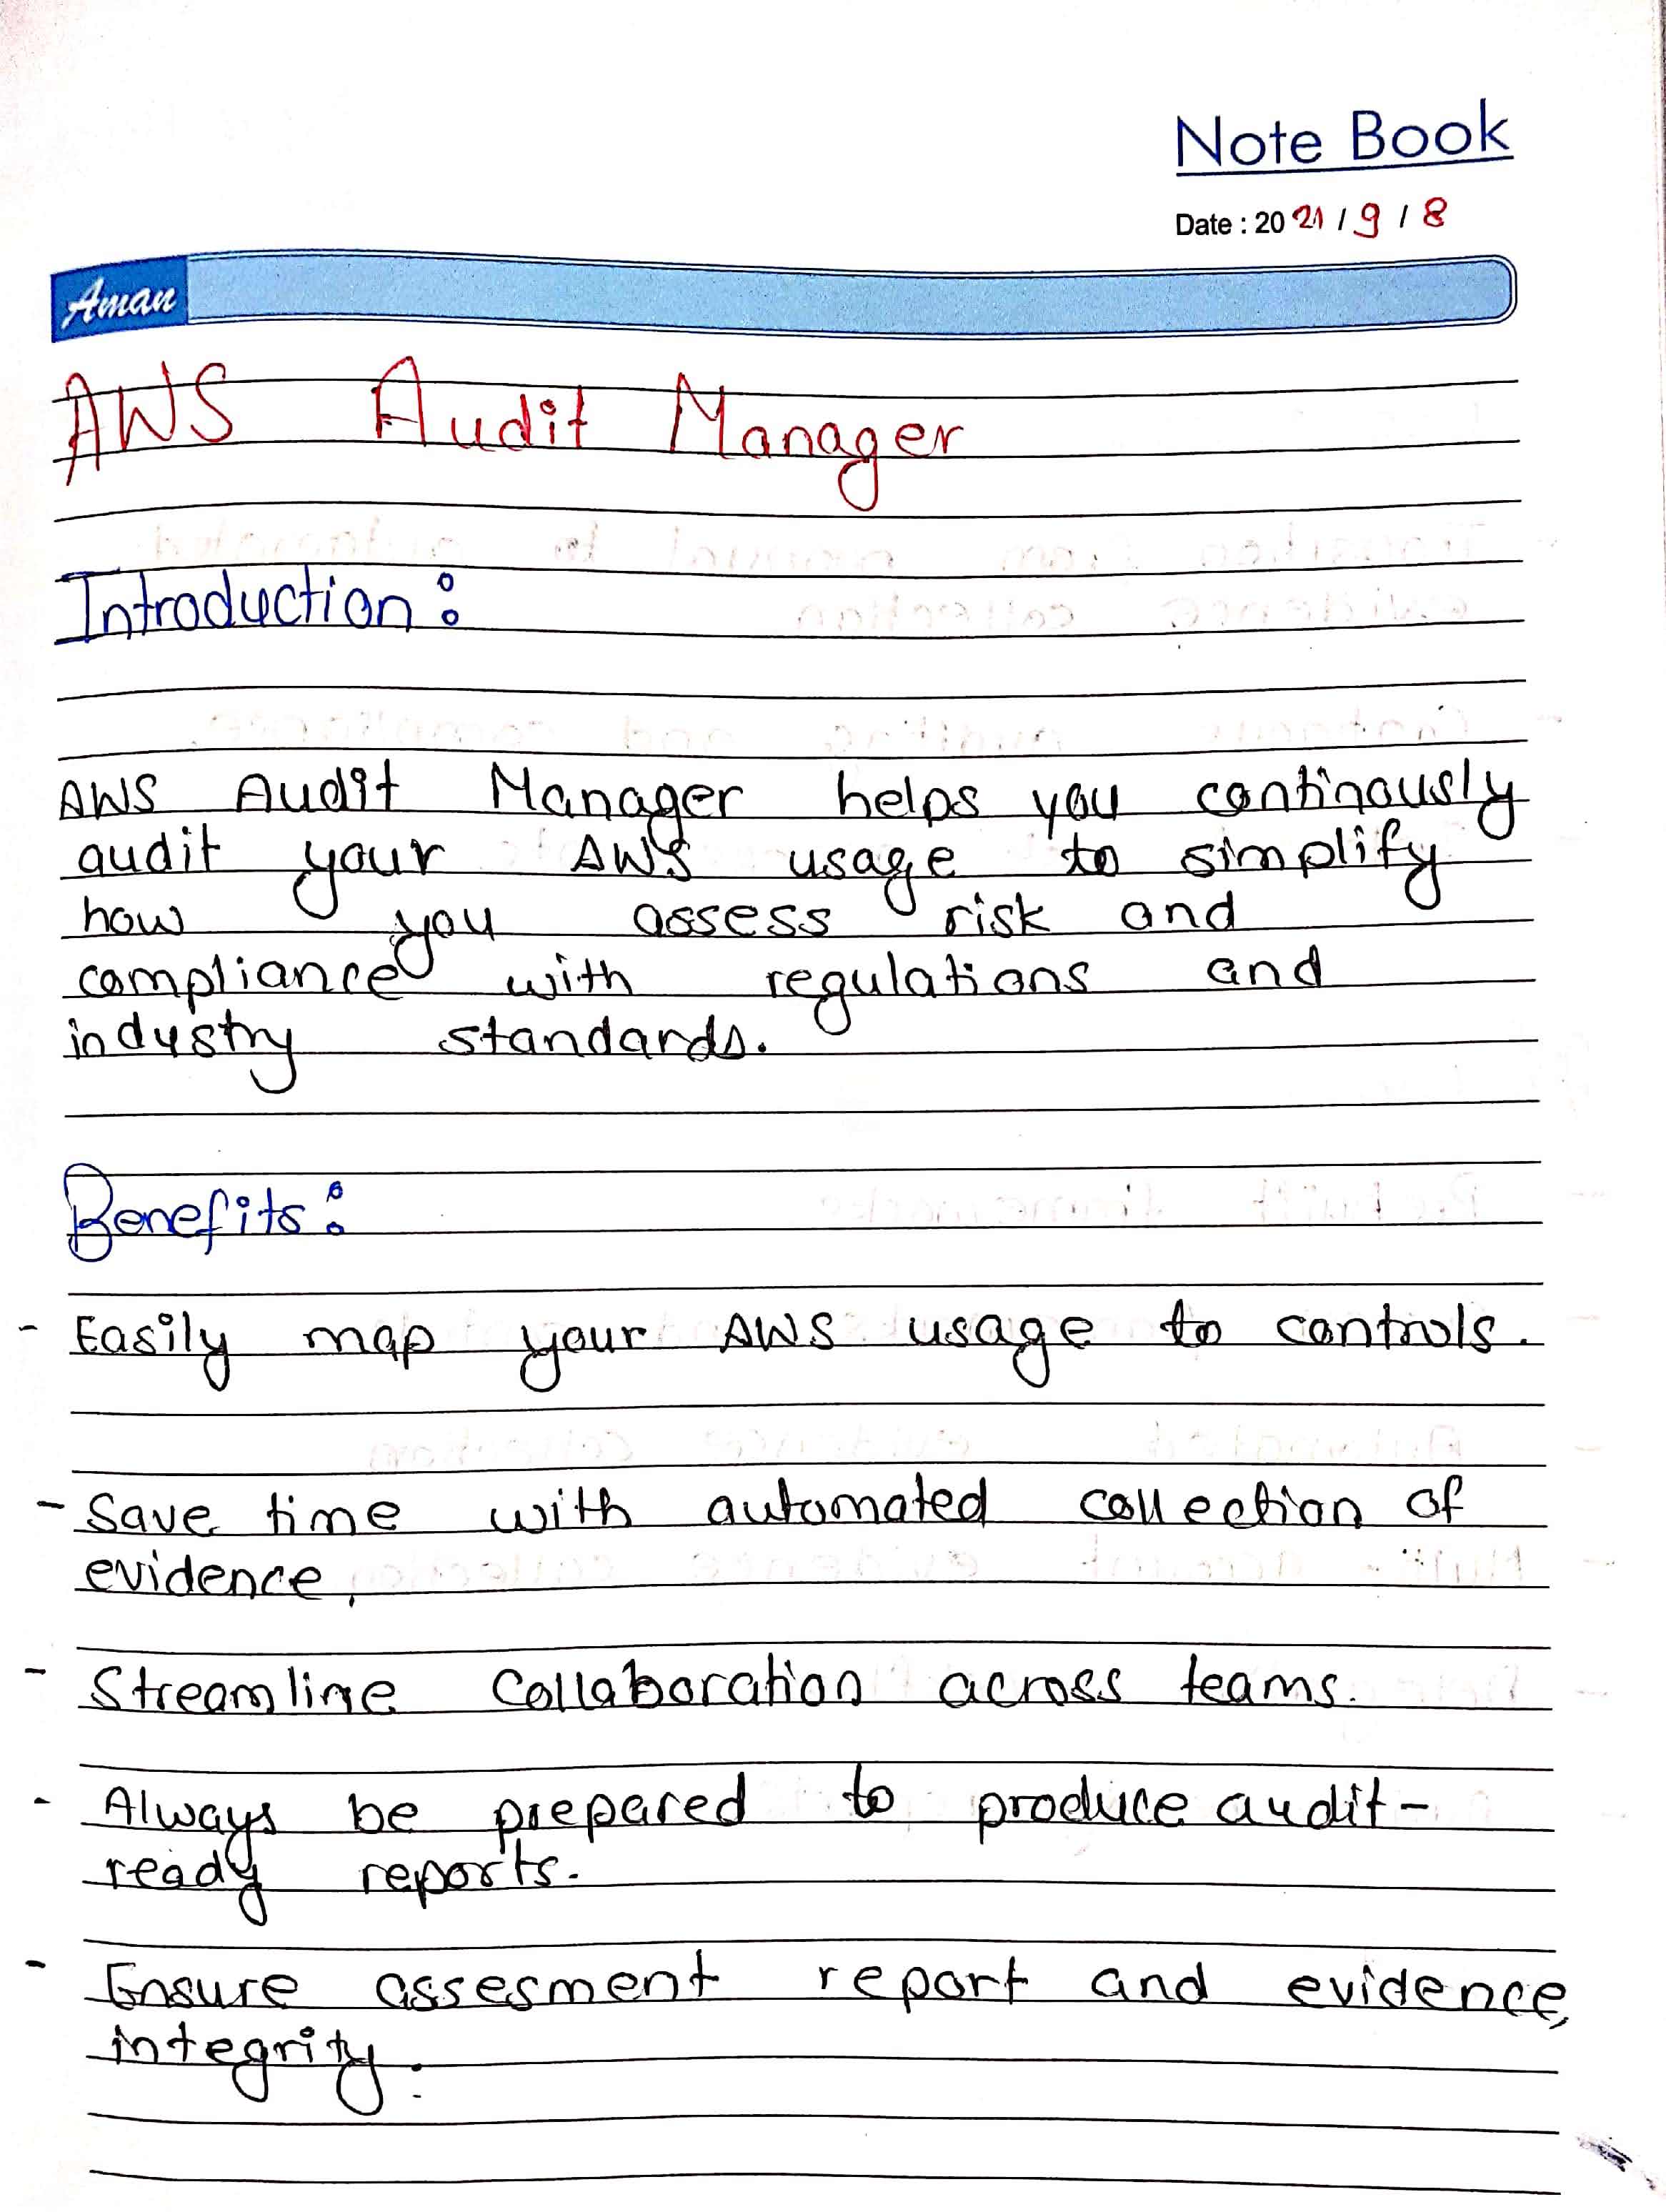 Note Book
Date : 2021 / 9 / 8
Aman
AWS Audit Manager
Introduction :
AWS Audit Manager helps you continously
audit your AWS usage to simplify
how you assess risk and
compliance with regulations and
industry standards.
Benefits :
- Easily map your AWS usage to controls.
- Save time with automated collection of
evidence,
- Streamline Collaboration across teams.
- Always be prepared to produce audit-
ready reports.
- Ensure assesment report and evidence,
integrity.